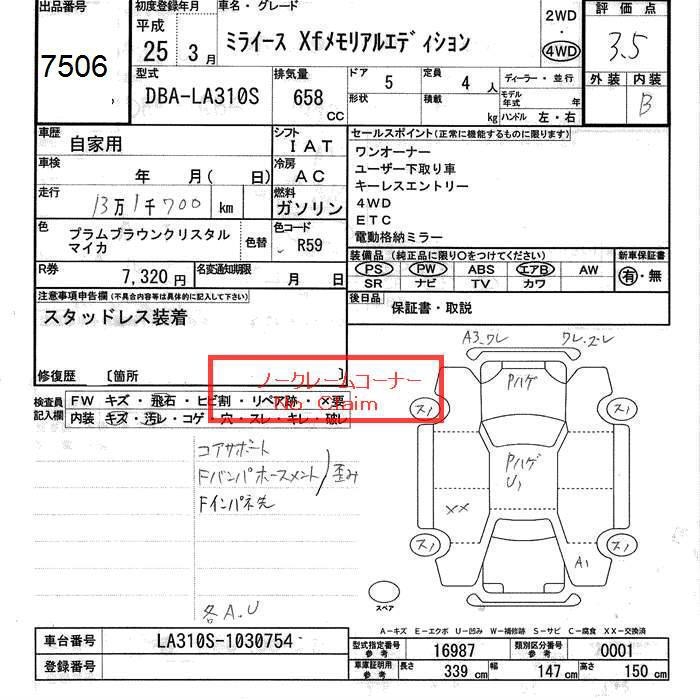 出品番号
7506
初度登録年月
平成
25年 3月
車名・グレード
ミライース Xfメモリアルエディション
2WD
・
4WD
評価点
3.5
外装 内装
B
型式
DBA-LA310S
排気量
658 CC
ドア 5
定員 4 人
形状
積載 kg
ディーラー・並行
モデル年式 年
ハンドル 左・右
車歴
自家用
シフト
IAT
車検
年 月( 日)
冷房
AC
走行
13万1千700 km
燃料
ガソリン
色
プラムブラウンクリスタル
マイカ
色替
色コード
R59
R券
7,320 円
名変通知期限
月 日
セールスポイント(正常に機能するものに限ります)
ワンオーナー
ユーザー下取り車
キーレスエントリー
4WD
ETC
電動格納ミラー
装備品(純正品に限り○をつけてください)
PS PW ABS エアB AW
SR ナビ TV カワ
新車保証書
有・無
後日品
保証書・取説
注意事項申告欄(不具合内容等は具体的に記入して下さい)
スタッドレス装着
修復歴 〔箇所 〕
ノークレームコーナー
No Claim
検査員
記入欄
FW キズ・飛石・ヒビ割・リペア跡・×要
内装 キズ・汚レ・コゲ・穴・スレ・キレ・破レ
コアサポート
Fバンパホースメント
歪み
Fインパネ先
各A.U
A3.ワレ
ワレ.ズレ
Pハゲ
Pハゲ
U1
スノ
スノ
スノ
スノ
××
A1
スペア
A-キズ E-エクボ U-凹み W-補修跡 S-サビ C-腐食 XX-交換済
車台番号
LA310S-1030754
登録番号
型式指定番号
参考
16987
類別区分番号
参考
0001
車庫証明用
参考
長さ 339 cm
幅 147 cm
高さ 150 cm